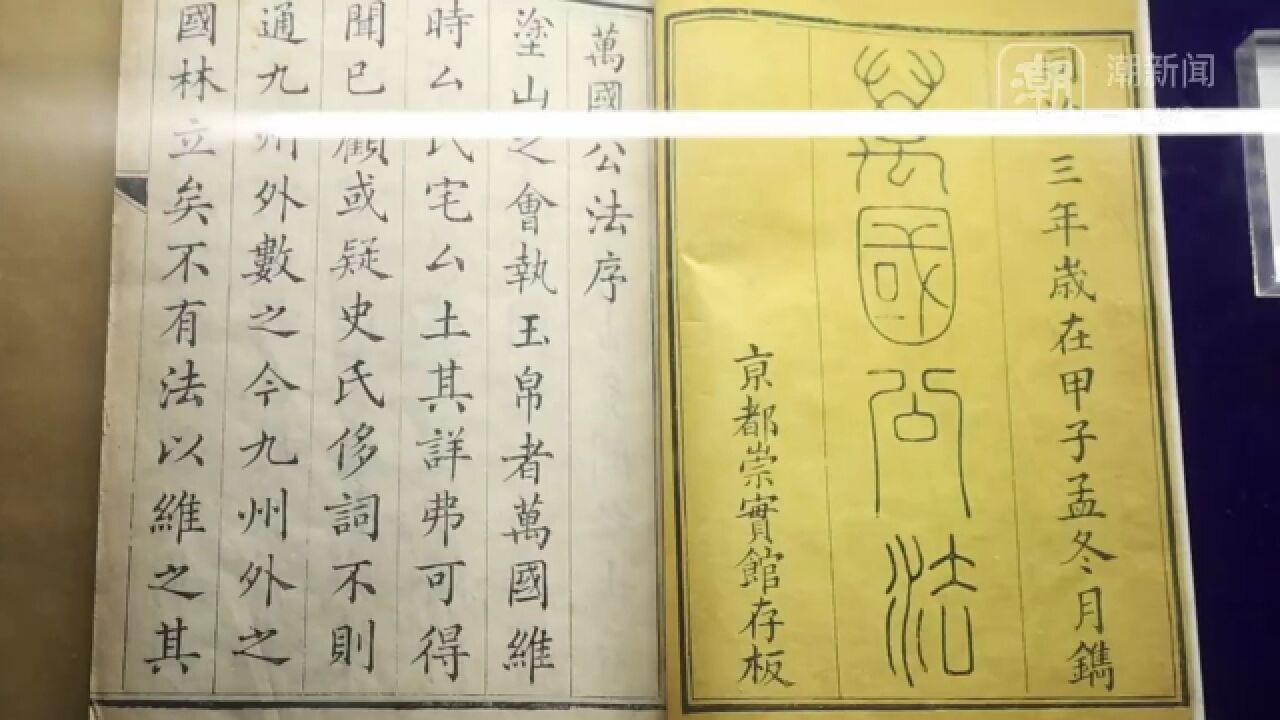 三年歲在甲子孟冬月鐫
萬國公法
京都崇實館存板
萬國公法序
塗山之會執玉帛者萬國維
時厶氏宅厶土其詳弗可得
聞已顧或疑史氏侈詞不則
通九州外數之今九州外之
國林立矣不有法以維之其
潮
潮新闻